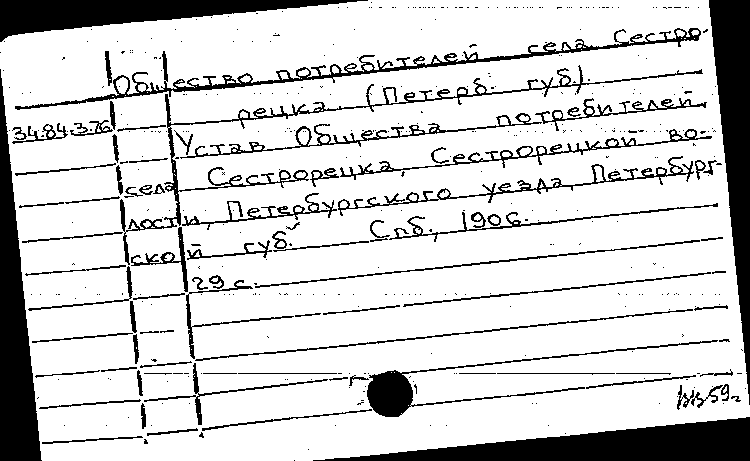 Общество потребителей села Сестро-
рецка. (Петерб. губ.).
34.84.3.76
Устав Общества потребителей
села Сестрорецка, Сестрорецкой во-
лости, Петербургского уезда, Петербург-
ской губ. Спб., 1906.
29 с.